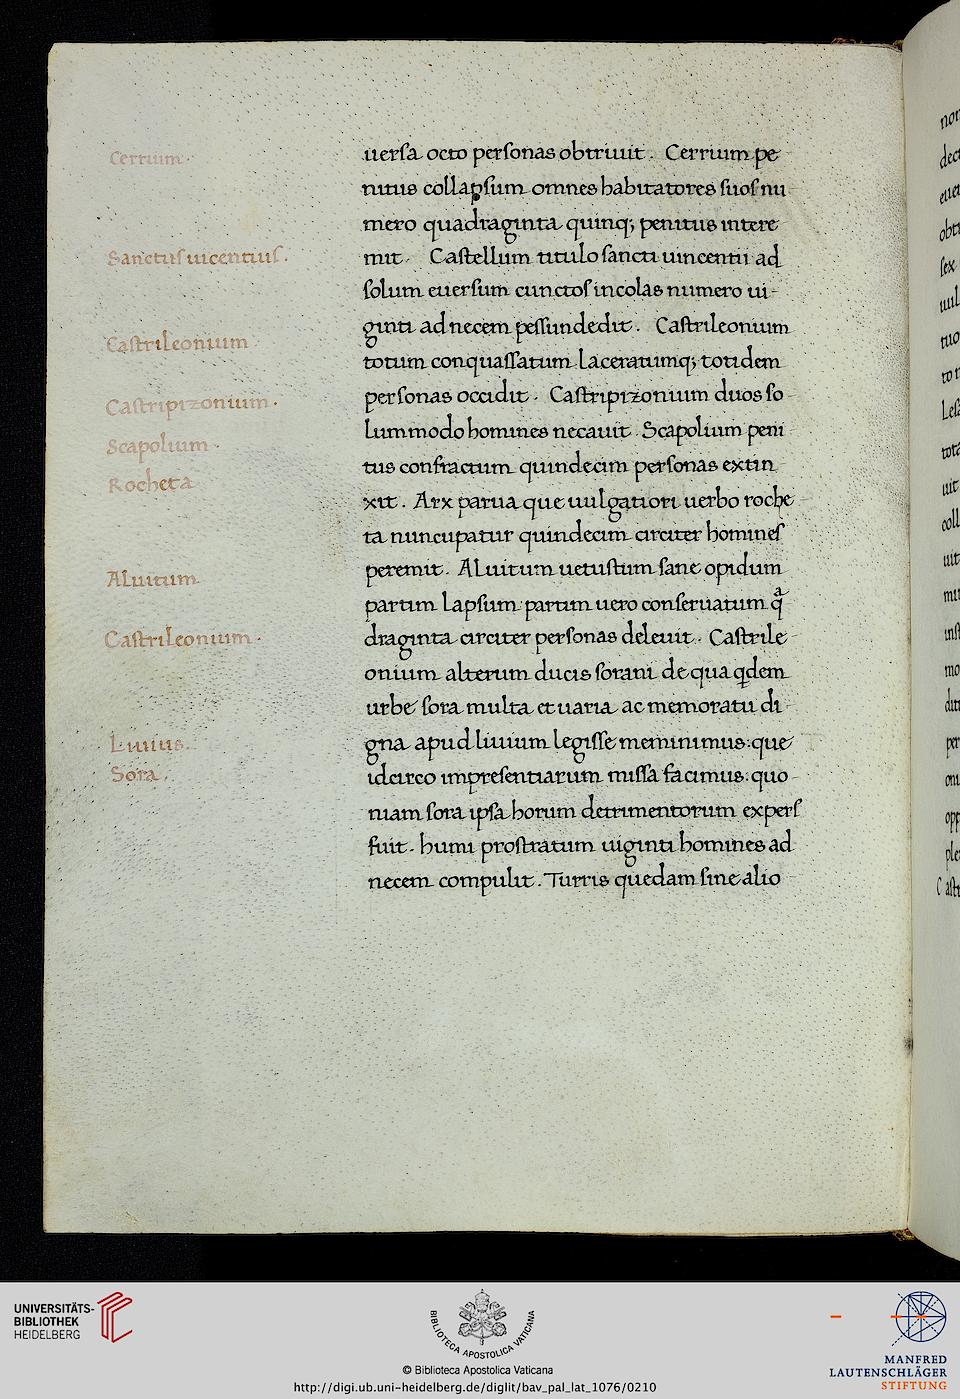 Cerrium.
Sanctus uicentius.
Castrileonium
Castriprzonium.
Scapolium.
Rocheta
Aluitum
Castrileonium.
Liuius.
Sora.
uersa octo personas obtriuit. Cerrium pe
nitus collapsum omnes habitatores suos nu
mero quadraginta quinq; penitus intere
mit. Castellum titulo sancti uincentii ad
solum euersum cunctos incolas numero ui-
ginti ad necem pessundedit. Castrileonium
totum conquassatum laceratumq; totidem
personas occidit. Castriprzonium duos so
lummodo homines necauit. Scapolium peni
tus confractum quindecim personas extin
xit. Arx parua que uulgatiori uerbo roche
ta nuncupatur quindecim circiter homines
peremit. Aluitum uetustum sane opidum
partim lapsum partim uero conseruatum qᵃ
draginta circiter personas deleuit. Castrile
onium alterum ducis sorani de qua qdem
urbe sora multa et uaria ac memoratu di-
gna apud liuium legisse meminimus: que
idcirco impresentiarum missa facimus: quo
niam sora ipsa horum detrimentorum expers
fuit. humi prostratum uiginti homines ad
necem compulit. Turris quedam sine alio
UNIVERSITÄTS-
BIBLIOTHEK
HEIDELBERG
BIBLIOTECA APOSTOLICA VATICANA
© Biblioteca Apostolica Vaticana
http://digi.ub.uni-heidelberg.de/diglit/bav_pal_lat_1076/0210
MANFRED
LAUTENSCHLÄGER
STIFTUNG